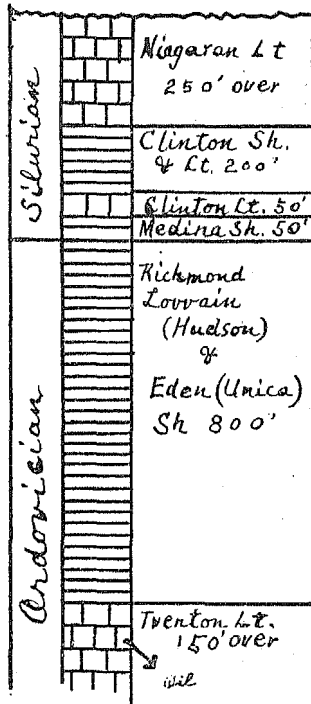 Silurian
Niagaran Lt
250' over
Clinton Sh.
& Lt. 200'
Clinton Lt. 50'
Medina Sh. 50'
Ordovician
Richmond
Lorrain
(Hudson)
&
Eden (Utica)
Sh 800'
Trenton Lt.
150' over
oil